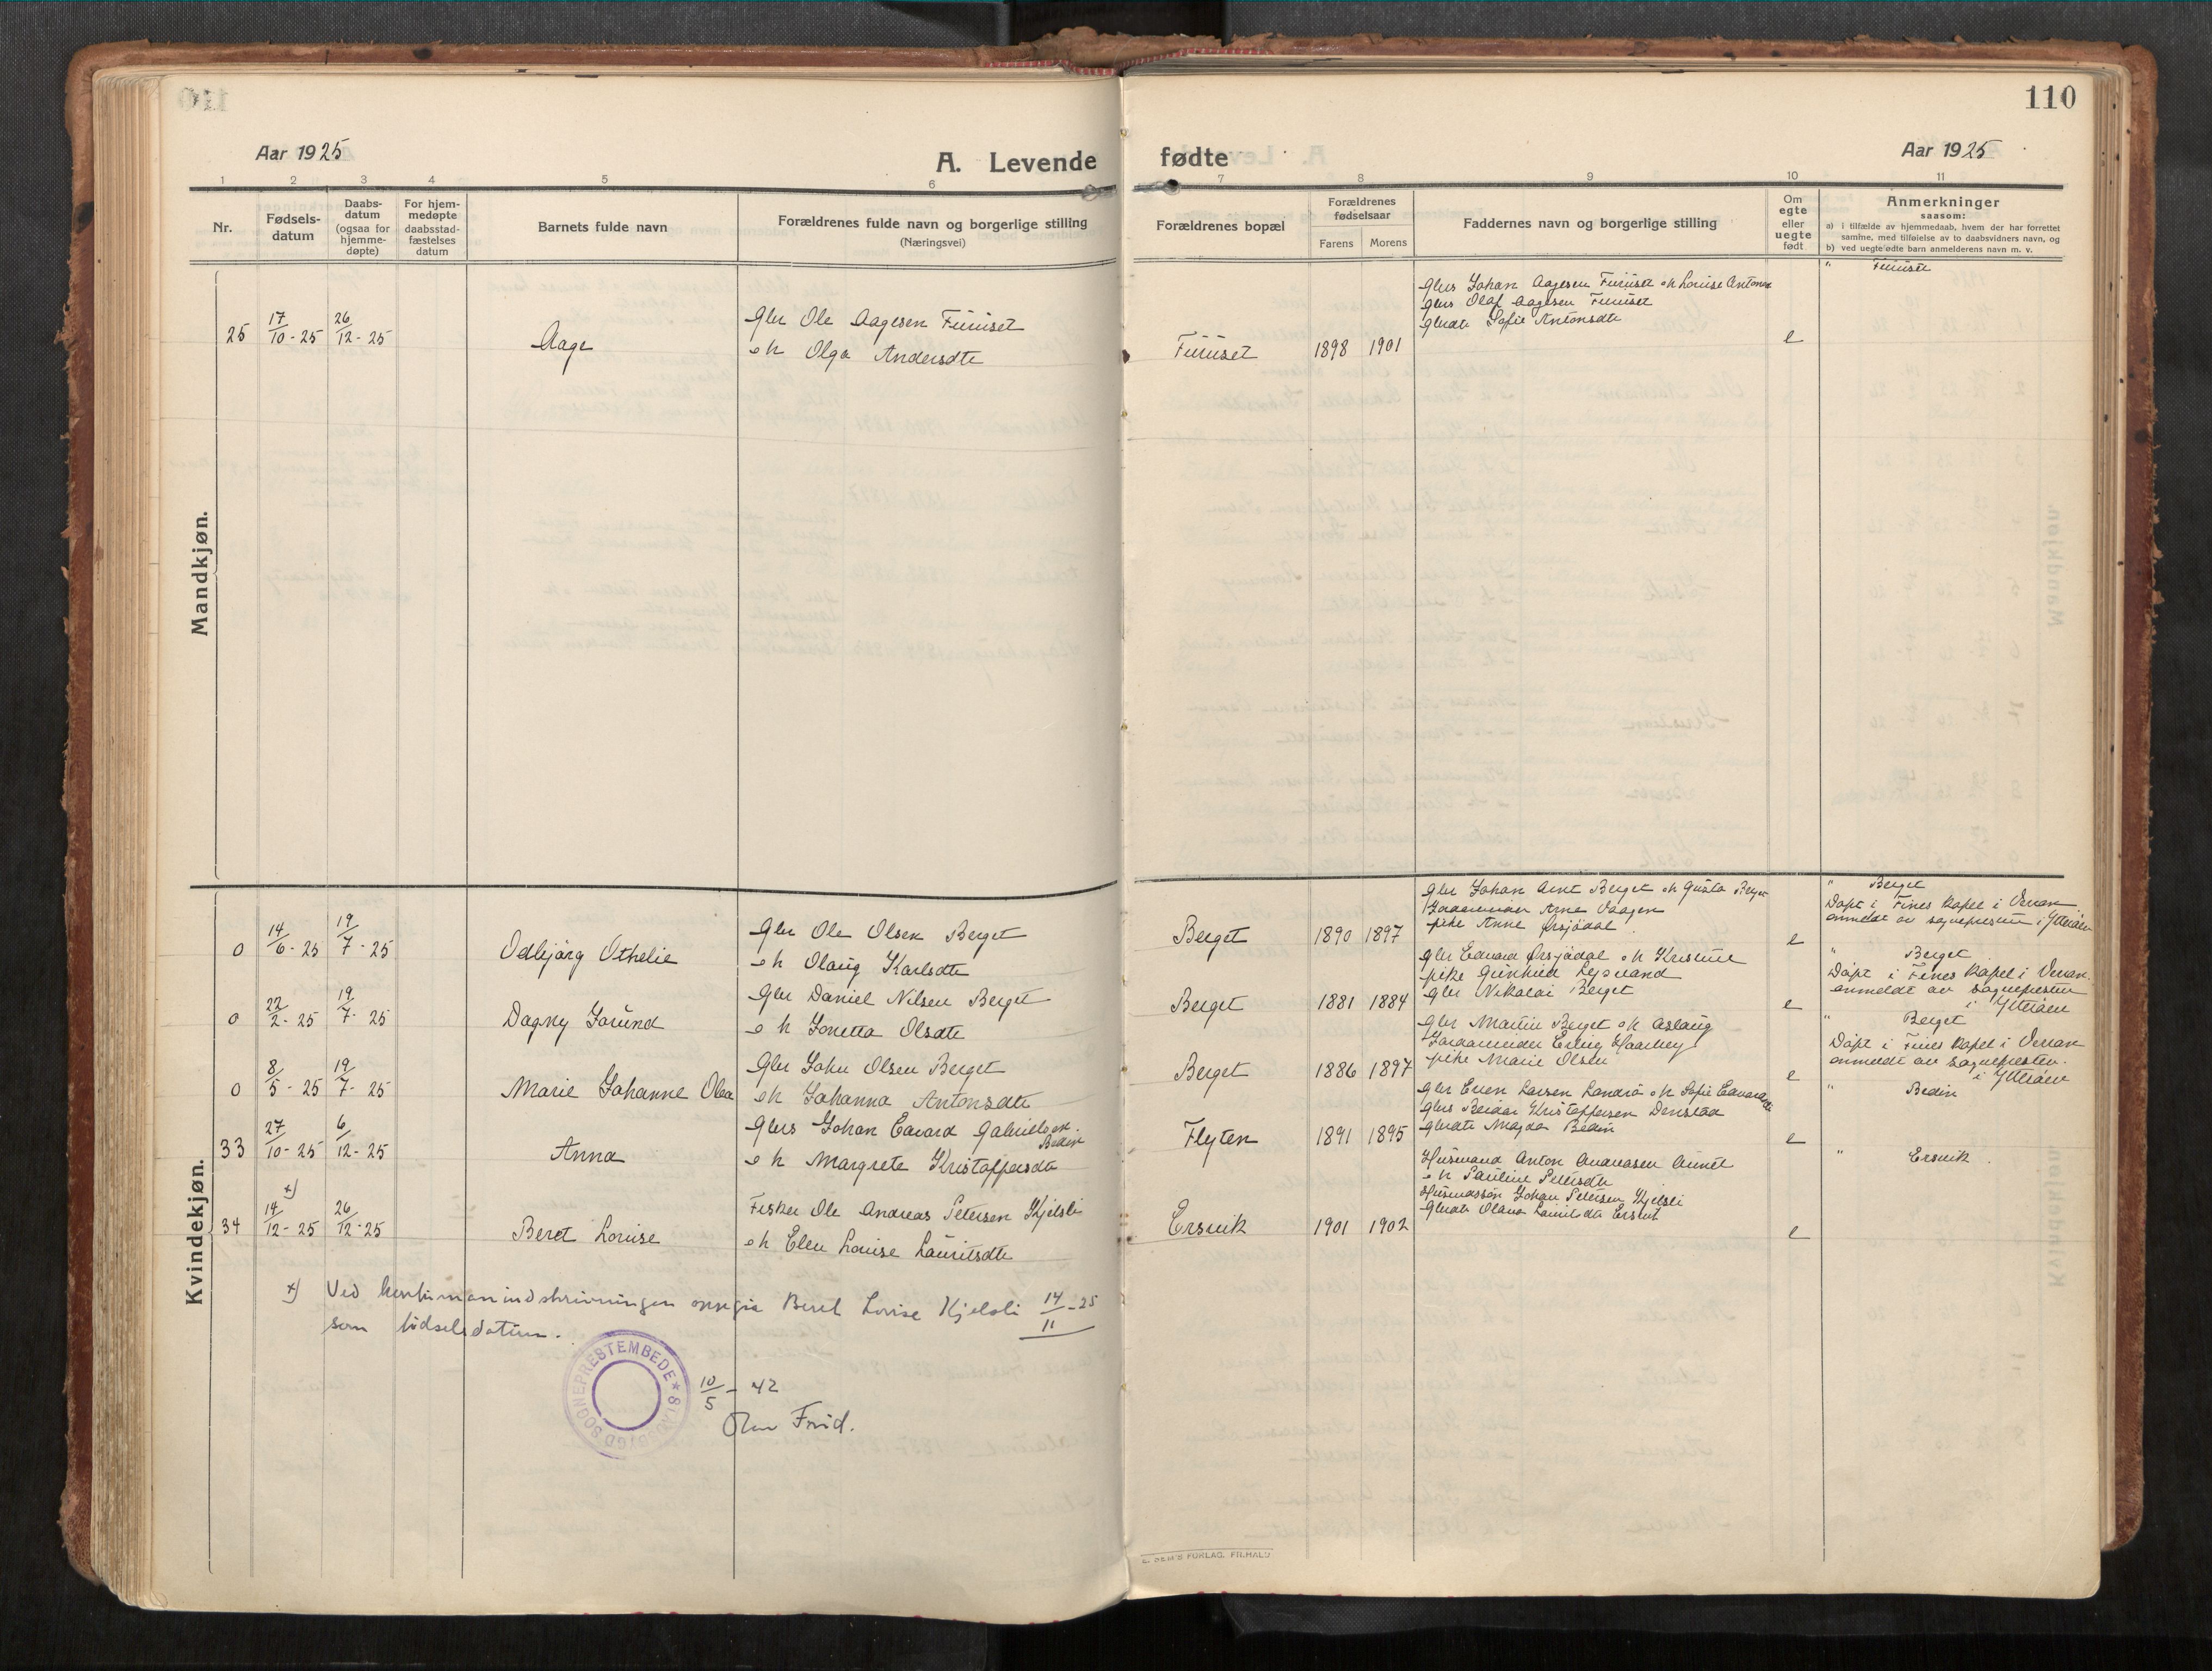 110
Aar 1925
A. Levende
fødte
Aar 1925
1 2 3 4 5 6 7 8 9 10 11
Nr.
Fødsels-
datum
Daabs-
datum
(ogsaa for
hjemme-
døpte)
For hjem-
medøpte
daabsstad-
fæstelses
datum
Barnets fulde navn
Forældrenes fulde navn og borgerlige stilling
(Næringsvei)
Forældrenes bopæl
Forældrenes
fødselsaar
Farens Morens
Faddernes navn og borgerlige stilling
Om
egte
eller
uegte
født
Anmerkninger
saasom:
a) i tilfælde av hjemmedaab, hvem der har forrettet
samme, med tilføielse av to daabsvidners navn, og
b) ved uegte fødte barn anmelderens navn m. v.
Mandkjøn.
25
17/10 - 25
26/12 - 25
Aage
Gbr Ole Aagesen Furuset
o h Olga Andersdtr
Furuset
1898 1901
Gbrs Johan Aagesen Furuset o h Louise Antons
Gbrs Olaf Aagesen Furuset
Gbrdtr Sofie Antonsdtr
e
" Furuset
Kvindekjøn.
0
14/6 - 25
19/7 - 25
Odbjörg Othelie
Gbr Ole Olsen Berget
o h Olaug Karlsdtr
Berget
1890 1897
Gbr Johan Arnt Berget o h Gusta Berget
Arne Vaagen
pike Anne Örsjödal
e
" Berget
Döpt i Fines kapel i Verran
anmeldt av sognepresten i Ytteröen
0
22/2 - 25
19/7 - 25
Dagny Jorund
Gbr Daniel Nilsen Berget
o h Jonetta Olsdtr
Berget
1881 1884
Gbr Edvard Örsjödal o h Kristine
pike Gunhild
Gbr Nikolai Berget
e
" Berget
Döpt i Fines kapel i Verran
anmeldt av sognepresten
i Ytteröen
0
8/5 - 25
19/7 - 25
Marie Johanne Olea
Gbr John Olsen Berget
o h Johanna Antonsdtr
Berget
1886 1897
Gbr Martin Berget o h Aslaug
Erling
pike Marie Olsen
e
" Berget
Döpt i Fines kapel i Verran
anmeldt av sognepresten
i Ytteröen
33
27/10 - 25
6/12 - 25
Anna
Gbrs Johan Edvard Gabrielsen
Bedin
o h Margrete Kristoffersdtr
Flyten
1891 1895
Gbr Even Larsen Landrö o h Sofie Edvardsdtr
Gbrs Peder Kristoffersen Denstad
Gbrdtr Magda Bedin
e
" Bedin
x)
34
14/12 - 25
26/12 - 25
Beret Louise
Fisker Ole Andreas Petersen Kjelsli
o h Elen Louise Lauritsdtr
Ersvik
1901 1902
Husmand Anton Andreasen Aunet
o h Pauline Petersdtr
Husmandssön Johan Petersen Kjelsli
Gbrdtr Olava Lauritsdtr Ersvik
e
" Ersvik
x) Ved konfirmanindskrivningen oppgir Beret Lovise Kjelsli 14/11 - 25
som födselsdatum.
SOGNEPRESTEMBEDE
10/5 - 42